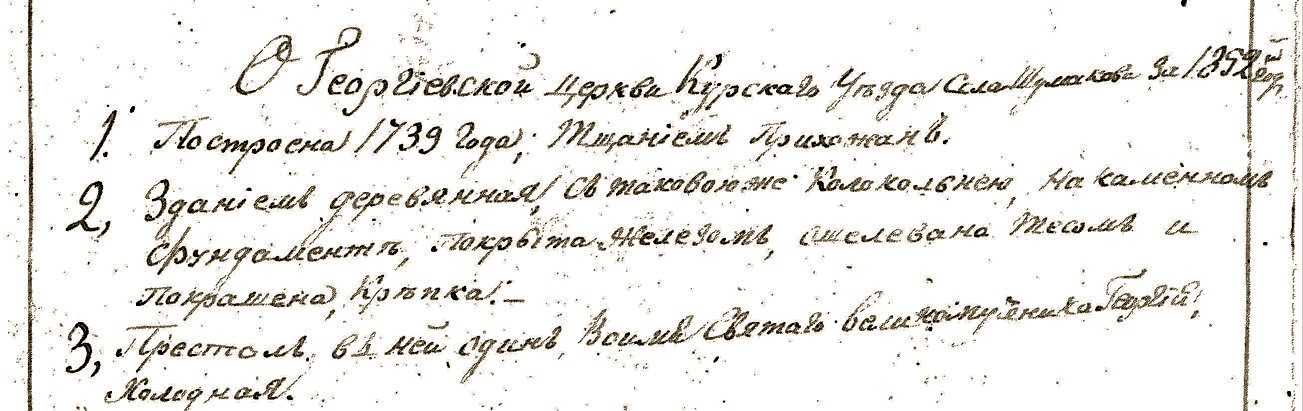 О Георгіевской церкви Курскаго Уѣзда Села Шумакова За 1852й год
1. Построена 1739 года, тщаніемъ Прихожанъ.
2, Зданіемъ деревянная, съ таковоюже Колокольнею, на каменномъ
фундаментѣ, покрыта железомъ, ошелевана тесомъ и
покрашена, Крѣпка. –
3, Престолъ въ ней одинъ, Воимя Святаго великомученика Георгія,
Холодная.